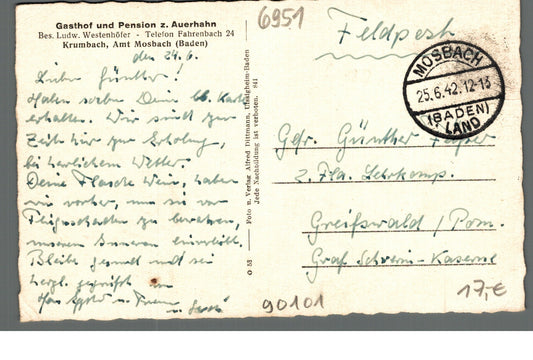 Gasthof und Pension z. Auerhahn
Bes. Ludw. Westenhöfer - Telefon Fahrenbach 24
Krumbach, Amt Mosbach (Baden)
den 24.6.
Lieber Günther!
Haben soeben Deine lb. Karte
erhalten. Wir sind zur
Zeit hier zur Erholung
bei herrlichem Wetter.
Deine Flasche Wein, haben
wir vorher, um sie vor
zu bewahren,
unserem Inneren einverleibt.
Bleibe gesund und sei
herzl. gegrüßt von
u.
Foto u. Verlag Alfred Dittmann, Uissigheim-Baden
Jede Nachbildung ist verboten. 841
O M
6951
Feldpost
MOSBACH
25.6.42.12-13
(BADEN)
LAND
Gefr. Günther
2. Fla. Lehrkomp.
Greifswald / Pom.
Graf Schwerin-Kaserne
90101
17,-€